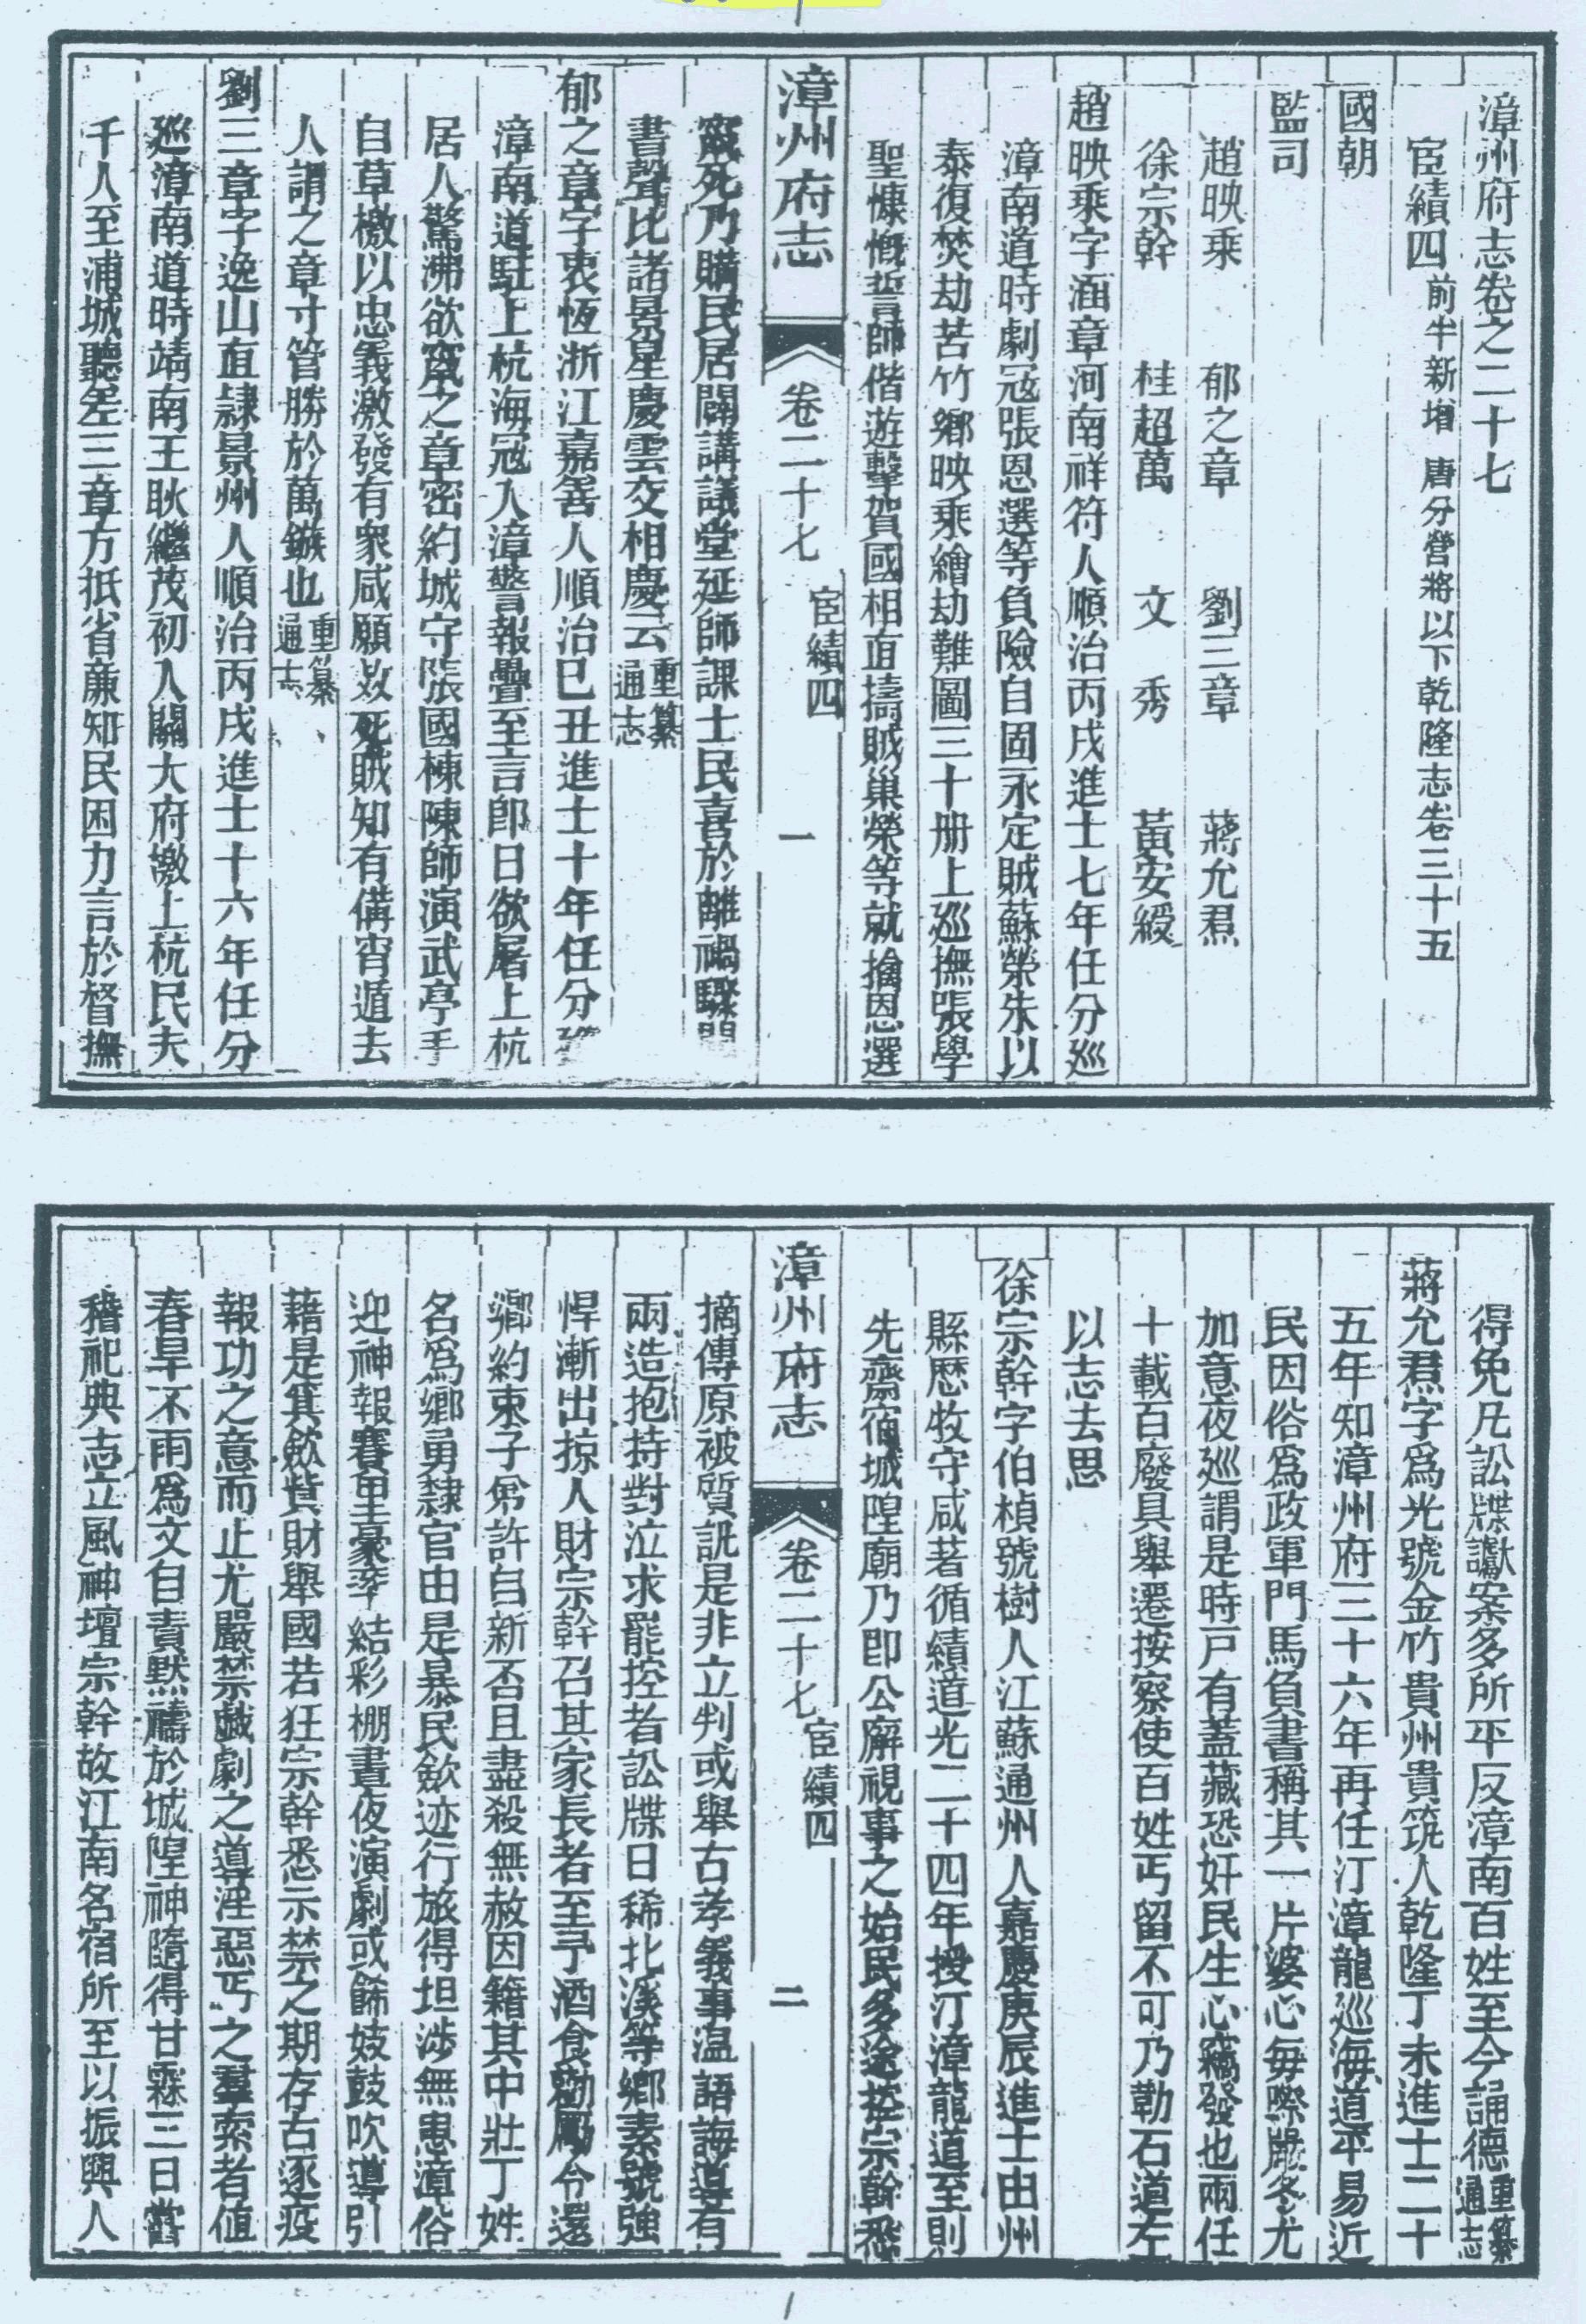 漳州府志卷之二十七
宦績四 前半新增 唐分營將以下乾隆志卷三十五
國朝
監司
趙映乘 郁之章 劉三章 蔣允焄
徐宗幹 桂超萬 文秀 黃安綬
趙映乘字涵章河南祥符人順治丙戌進士七年任分巡
漳南道時劇寇張恩選等負險自固永定賊蘇榮朱以
泰復焚劫苦竹鄉映乘繪劫難圖三十册上巡撫張學
聖慷慨誓師偕遊擊賀國相直擣賊巢榮等就擒恩選
漳州府志 卷二十七 宦績四 一
竄死乃購民居闢講議堂延師課士民喜於離禍驟聞
書聲比諸景星慶雲交相慶云 重纂通志
郁之章字衷恆浙江嘉善人順治已丑進士十年任分巡
漳南道駐上杭海寇入漳警報疊至言卽日欲屠上杭
居人驚沸欲竄之章密約城守張國棟陳師演武亭手
自草檄以忠義激發有衆咸願效死賊知有備宵遁去
人謂之章寸管勝於萬鏃也 重纂通志
劉三章字逸山直隸景州人順治丙戌進士十六年任分
巡漳南道時靖南王耿繼茂初入關大府檄上杭民夫
千人至浦城聽差三章方抵省廉知民困力言於督撫
得免凡訟牒讞案多所平反漳南百姓至今誦德 重纂通志
蔣允焄字爲光號金竹貴州貴筑人乾隆丁未進士二十
五年知漳州府三十六年再任汀漳龍巡海道平易近
民因俗爲政軍門馬負書稱其一片婆心每際嚴冬尤
加意夜巡謂是時戸有蓋藏恐奸民生心竊發也兩任
十載百廢具舉遷按察使百姓丐留不可乃勒石道左
以志去思
徐宗幹字伯楨號樹人江蘇通州人嘉慶庚辰進士由州
縣歷牧守咸著循績道光二十四年授汀漳龍道至則
先齋宿城隍廟乃卽公廨視事之始民多途控宗幹悉
漳州府志 卷二十七 宦績四 二
摘傳原被質訊是非立判或舉古孝義事温語誨導有
兩造抱持對泣求罷控者訟牒日稀北溪等鄉素號強
悍漸出掠人財宗幹召其家長者至予酒食勸勵令還
鄉約束子弟許自新否且盡殺無赦因籍其中壯丁姓
名爲鄉勇隸官由是暴民歛迹行旅得坦涉無患漳俗
迎神報賽里豪率結彩棚晝夜演劇或飾妓鼓吹導引
藉是箕歛貲財舉國若狂宗幹悉示禁之期存古逐疫
報功之意而止尤嚴禁戲劇之導淫惡丐之羣索者值
春旱不雨爲文自責默禱於城隍神隨得甘霖三日嘗
稽祀典志立風神壇宗幹故江南名宿所至以振興人